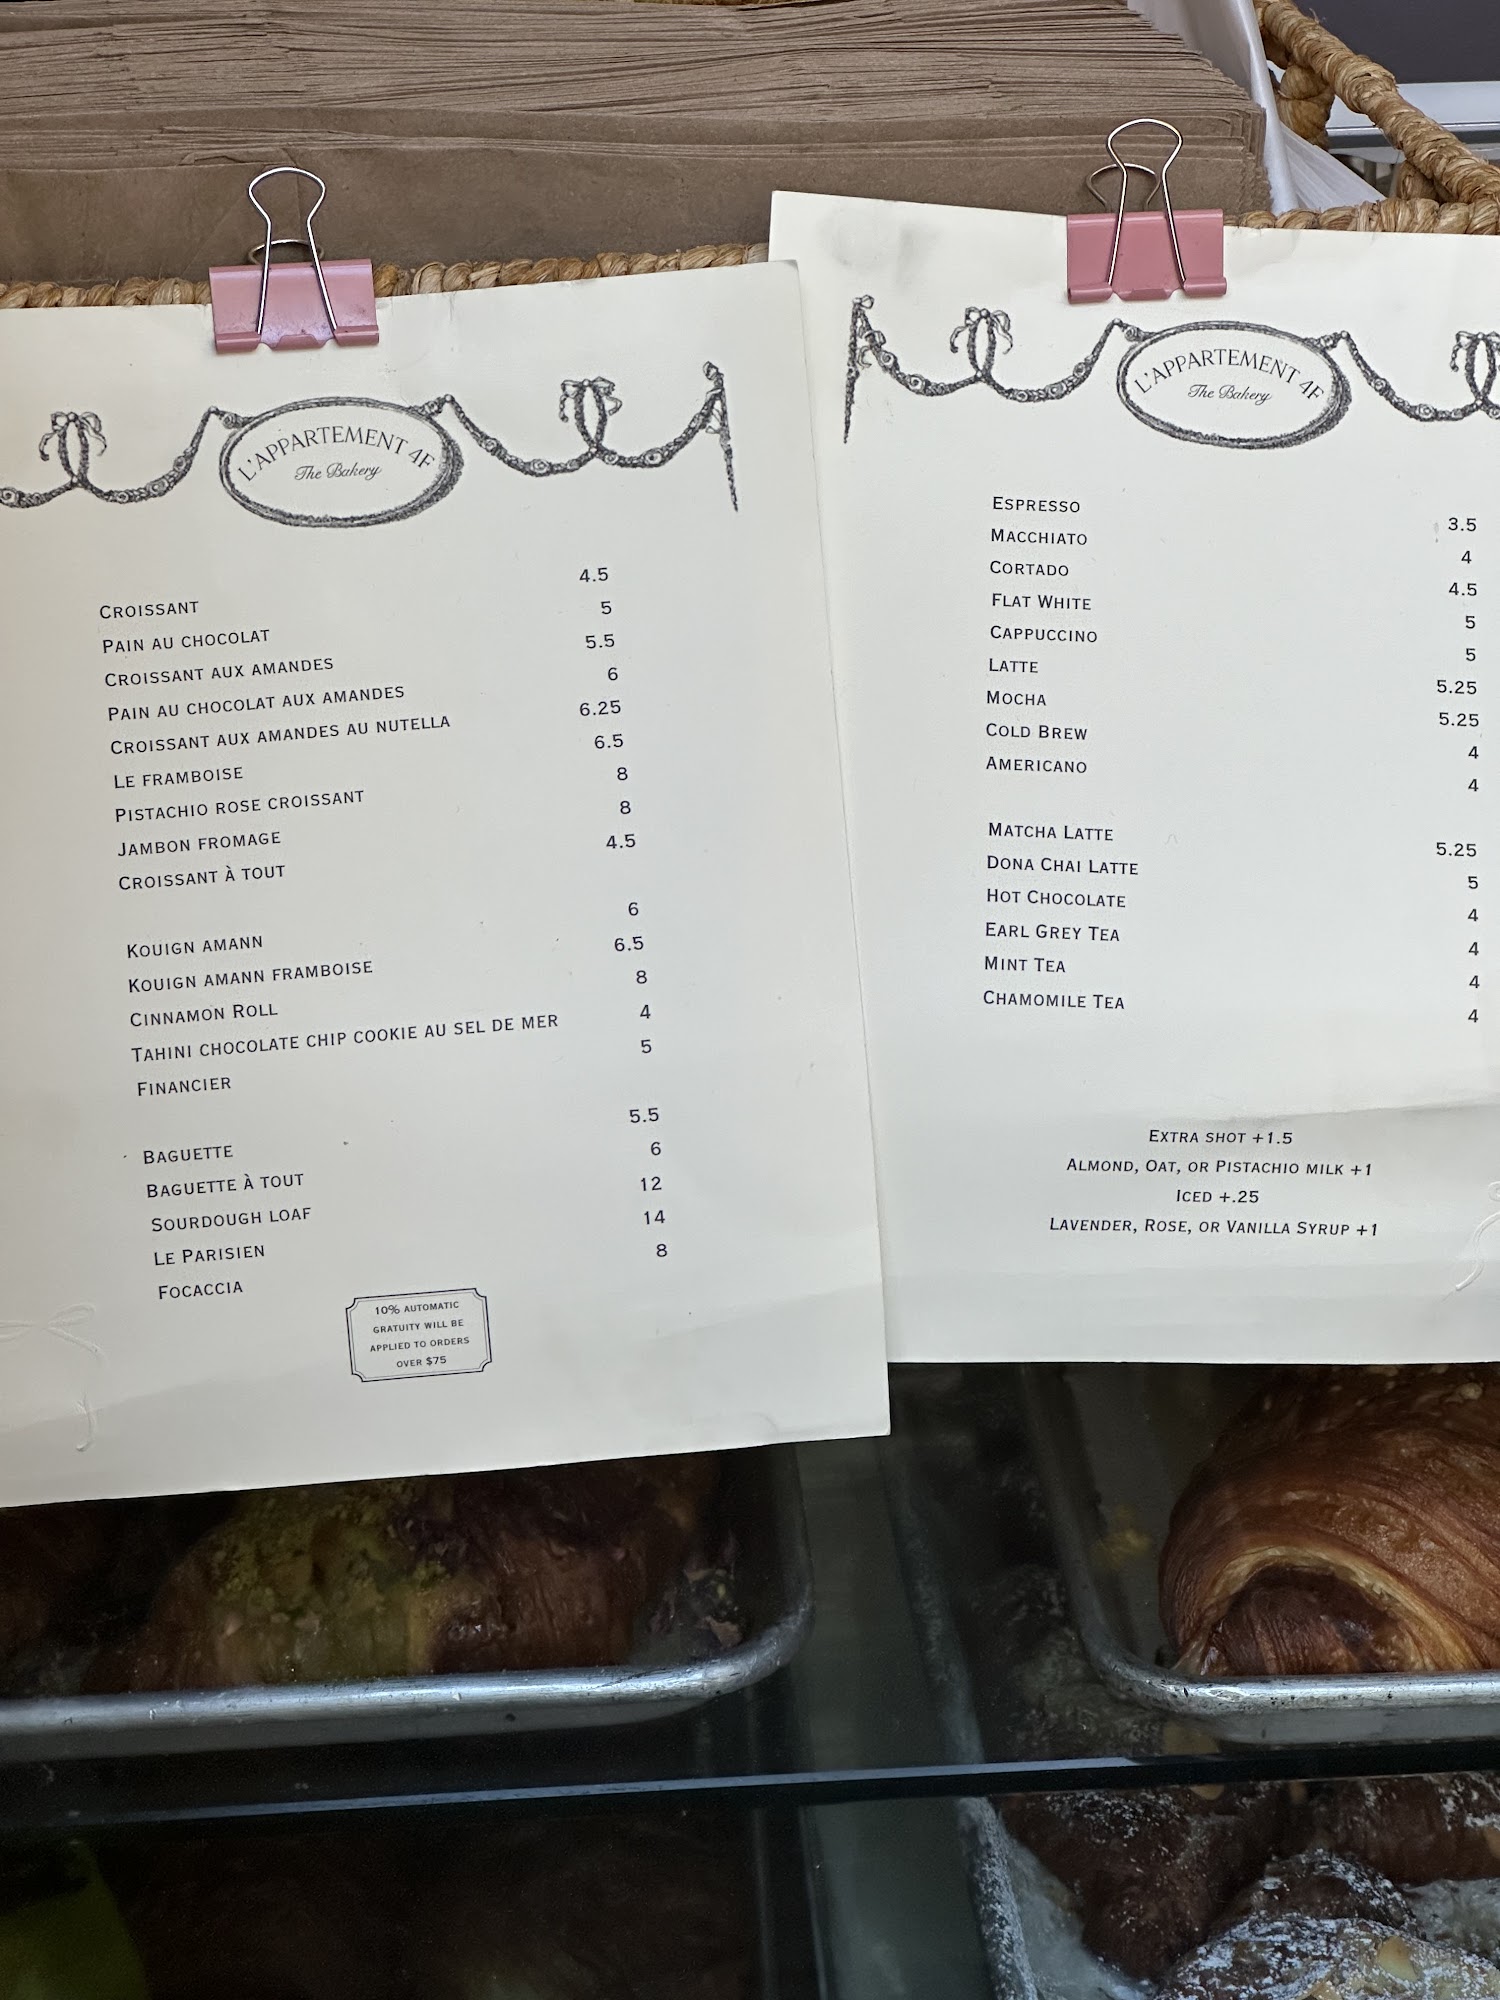 L'APPARTEMENT 4F
The Bakery
CROISSANT 4.5
PAIN AU CHOCOLAT 5
CROISSANT AUX AMANDES 5.5
PAIN AU CHOCOLAT AUX AMANDES 6
CROISSANT AUX AMANDES AU NUTELLA 6.25
LE FRAMBOISE 6.5
PISTACHIO ROSE CROISSANT 8
JAMBON FROMAGE 8
CROISSANT À TOUT 4.5
KOUIGN AMANN 6
KOUIGN AMANN FRAMBOISE 6.5
CINNAMON ROLL 8
TAHINI CHOCOLATE CHIP COOKIE AU SEL DE MER 4
FINANCIER 5
BAGUETTE 5.5
BAGUETTE À TOUT 6
SOURDOUGH LOAF 12
LE PARISIEN 14
FOCACCIA 8
10% AUTOMATIC
GRATUITY WILL BE
APPLIED TO ORDERS
OVER $75
L'APPARTEMENT 4F
The Bakery
ESPRESSO 3.5
MACCHIATO 4
CORTADO 4.5
FLAT WHITE 5
CAPPUCCINO 5
LATTE 5.25
MOCHA 5.25
COLD BREW 4
AMERICANO 4
MATCHA LATTE 5.25
DONA CHAI LATTE 5
HOT CHOCOLATE 4
EARL GREY TEA 4
MINT TEA 4
CHAMOMILE TEA 4
EXTRA SHOT +1.5
ALMOND, OAT, OR PISTACHIO MILK +1
ICED +.25
LAVENDER, ROSE, OR VANILLA SYRUP +1